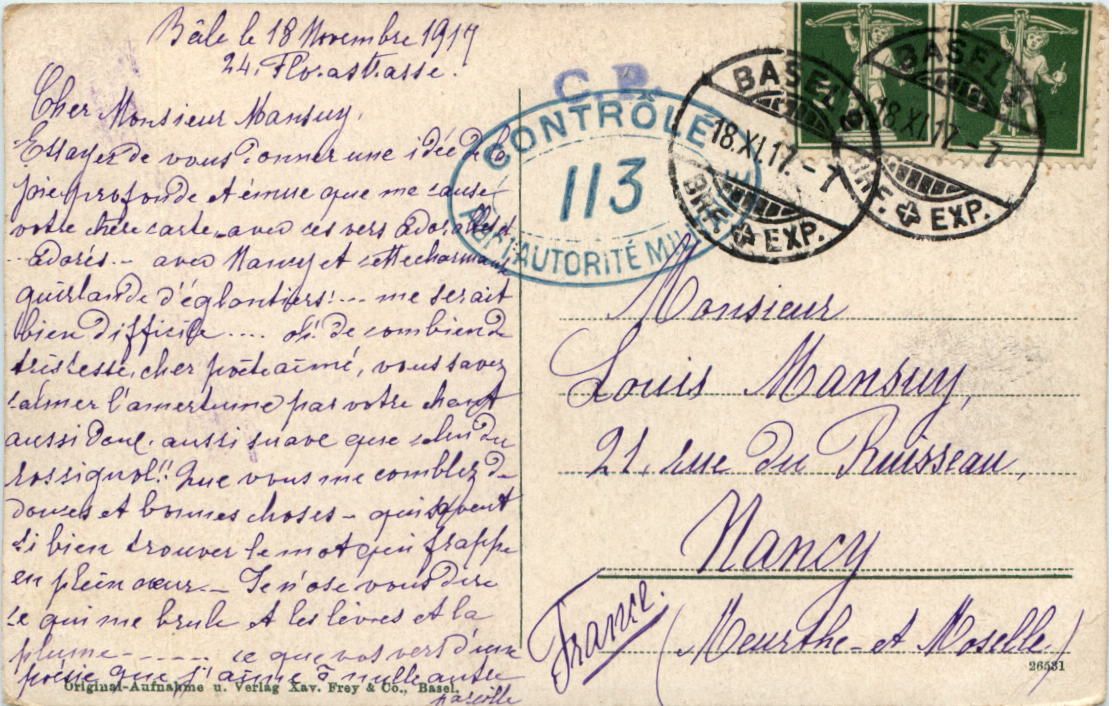 Bâle le 18 Novembre 1917
24. Florastrasse.
Cher Monsieur Mansuy,
Essayer de vous donner une idée de la
joie profonde et émue que me cause
votre chère carte, avec ces vers adorables et
adorés – avec Nancy et cette charmante
guirlande d'églantiers! ... me serait
bien difficile .... oh! de combien de
tristesse, cher poète aimé, vous savez
calmer l'amertume par votre chant
aussi doux, aussi suave que celui du
rossignol!! Que vous me comblez de
douces et bonnes choses – qui savent
si bien trouver le mot qui frappe
en plein cœur – Je n'ose vous dire
ce qui me brule et les lèvres et la
plume ------ ce que vos vers d'une
poésie que j'aime à nulle autre
pareille
Original-Aufnahme u. Verlag Xav. Frey & Co., Basel.
C. P.
CONTRÔLE
113
AUTORITÉ
BASEL
18.XI.17.-7
BRF. EXP.
BASEL 2
18.XI.17.-7
BRF. EXP.
Monsieur
Louis Mansuy,
21, rue du Ruisseau,
Nancy
(Meurthe-et-Moselle)
France.
26531